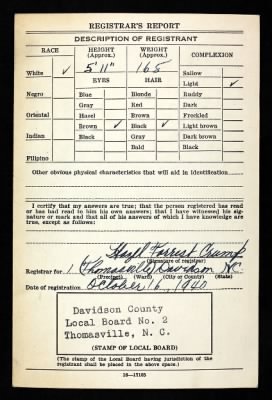 REGISTRAR'S REPORT
DESCRIPTION OF REGISTRANT
RACE HEIGHT (Approx.) WEIGHT (Approx.) COMPLEXION
5'11" 165 Sallow
White ✓ EYES HAIR Light ✓
Negro Blue Blonde Ruddy
Gray Red Dark
Oriental Hazel Brown Freckled
Brown ✓ Black ✓ Light brown
Indian Black Gray Dark brown
Bald Black
Filipino
Other obvious physical characteristics that will aid in identification
I certify that my answers are true; that the person registered has read
or has had read to him his own answers; that I have witnessed his
signature or mark and that all of his answers of which I have knowledge
are true, except as follows:
Forrest Crump
(Signature of registrar)
Registrar for 1 Thomasville Davidson N.C.
(Precinct) (Ward) (City or County) (State)
Date of registration October 16, 1940
Davidson County
Local Board No. 2
Thomasville, N. C.
(STAMP OF LOCAL BOARD)
(The stamp of the Local Board having jurisdiction of the
registrant shall be placed in the above space.)